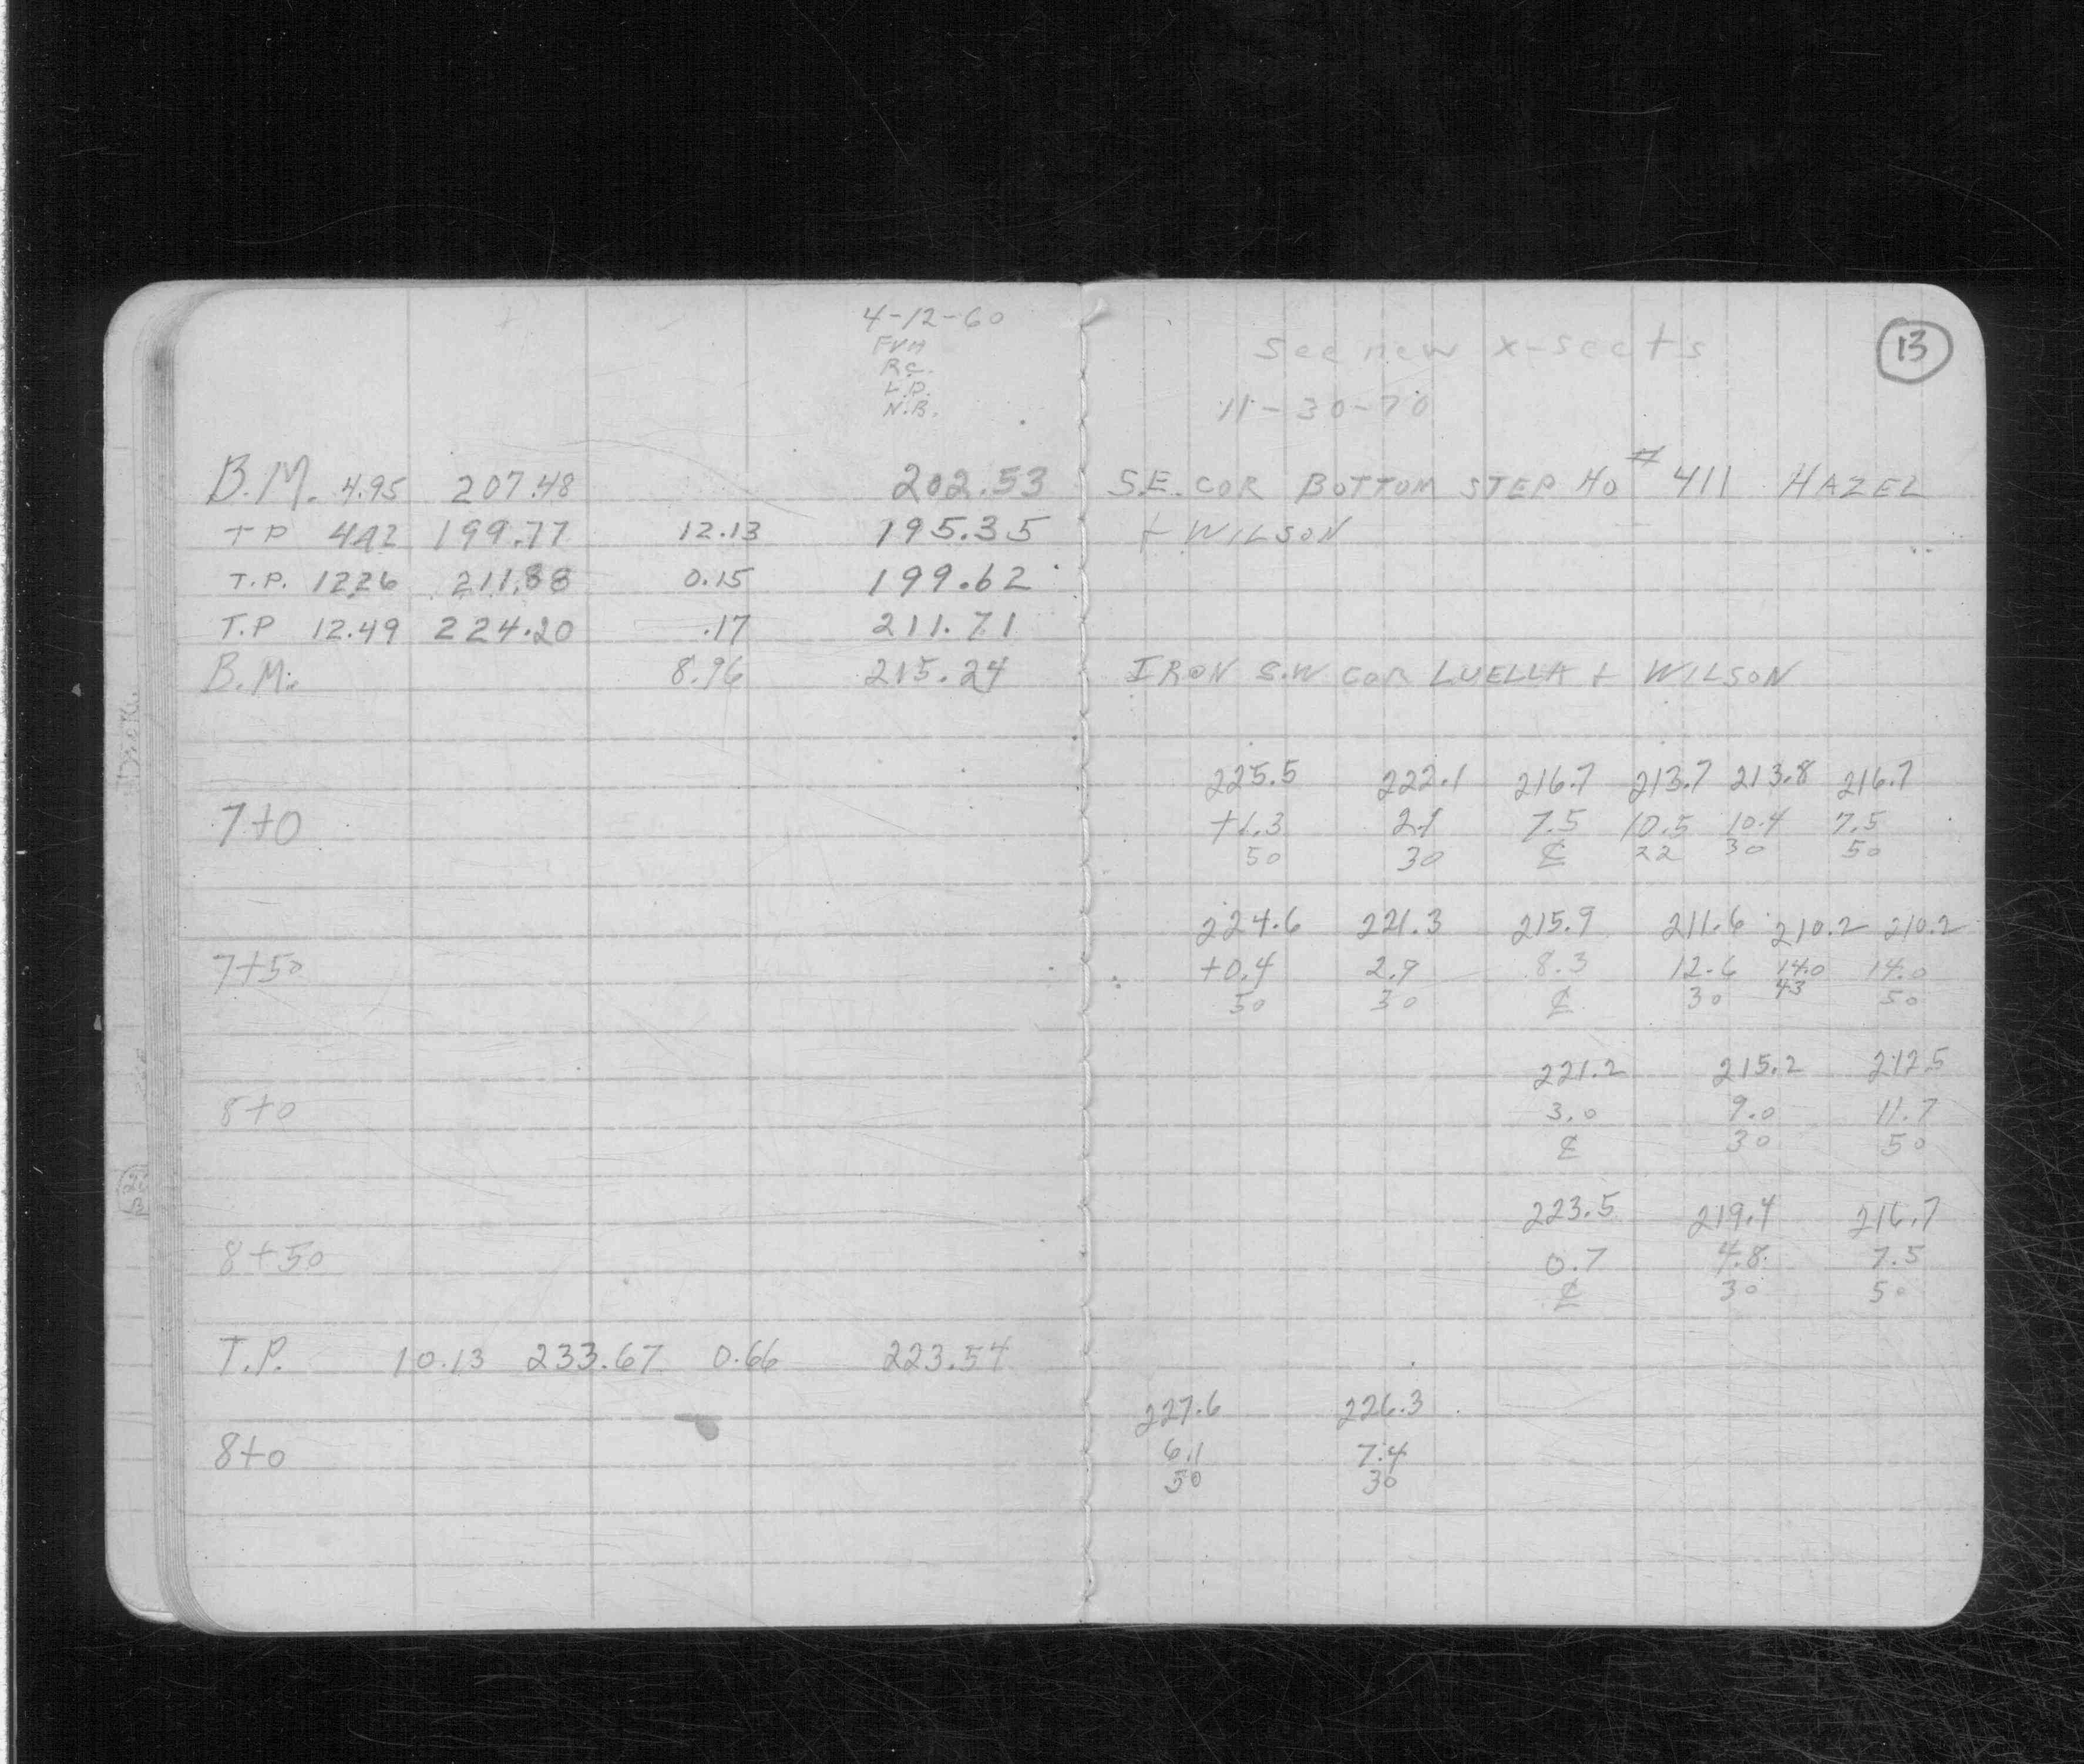 4-12-60
FVH
R.C.
L.P.
N.B.
B.M. 4.95 207.48 202.53
T P 4.42 199.77 12.13 195.35
T.P. 12.26 211.88 0.15 199.62
T.P 12.49 224.20 .17 211.71
B.M. 8.96 215.24
7+0
7+50
8+0
8+50
T.P. 10.13 233.67 0.66 223.54
8+0
13
See new x-sects
11-30-70
S.E. COR BOTTOM STEP HO # 411 HAZEL
+ WILSON
IRON S.W COR LUELLA + WILSON
225.5 222.1 216.7 213.7 213.8 216.7
+1.3 2.1 7.5 10.5 10.4 7.5
50 30 ℄ 22 30 50
224.6 221.3 215.9 211.6 210.2 210.2
+0.4 2.9 8.3 12.6 14.0 14.0
50 30 ℄ 30 43 50
221.2 215.2 212.5
3.0 9.0 11.7
℄ 30 50
223.5 219.4 216.7
0.7 4.8 7.5
℄ 30 50
227.6 226.3
6.1 7.4
50 30